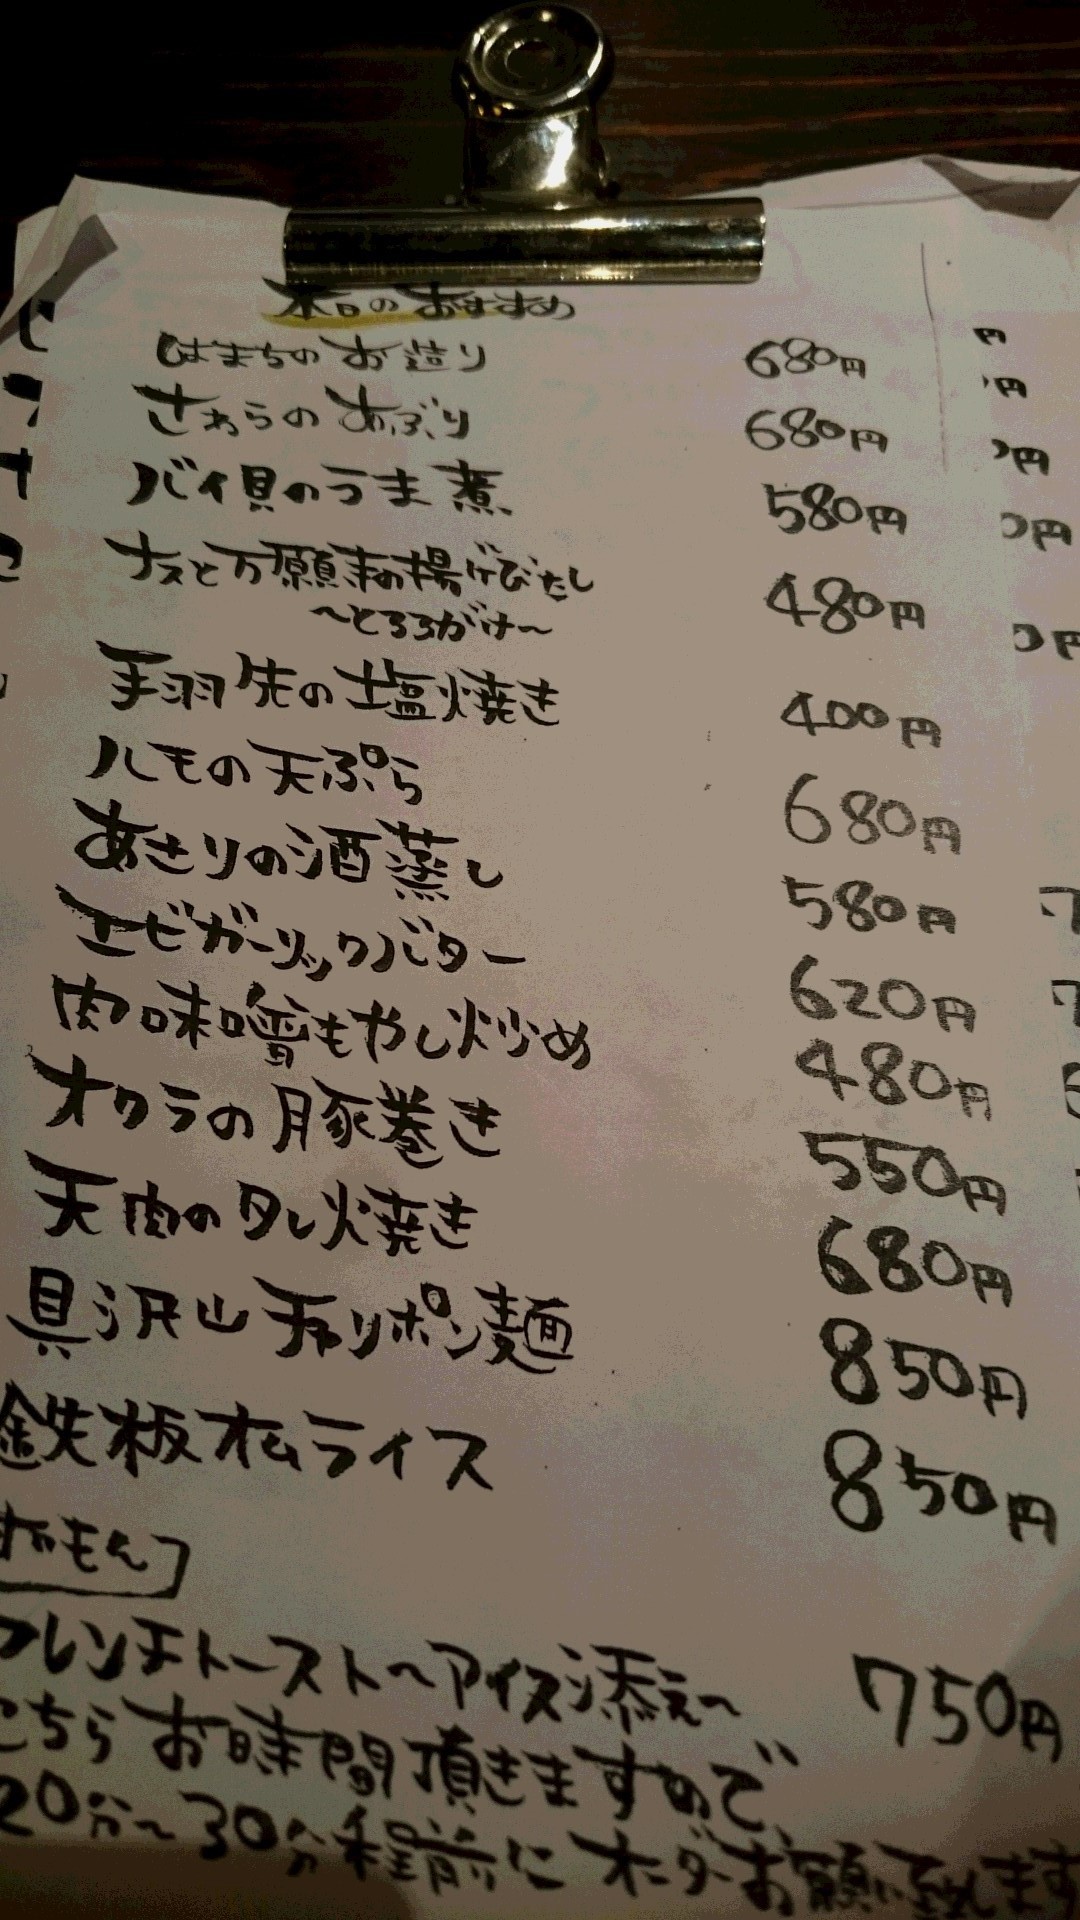 本日のおすすめ
はまちのお造り 680円
さわらのあぶり 680円
バイ貝のうま煮 580円
ナスと万願寺の揚げびたし 480円
〜とろろがけ〜
手羽先の塩焼き 400円
ハモの天ぷら 680円
あさりの酒蒸し 580円
エビガーリックバター 620円
肉味噌もやし炒め 480円
オクラの豚巻き 550円
天肉のタレ焼き 680円
具沢山チャリポン麺 850円
鉄板オムライス 850円
フレンチトースト〜アイス添え〜 750円
こちらお時間頂きますので、
20分〜30分程前にオーダーお願い致します